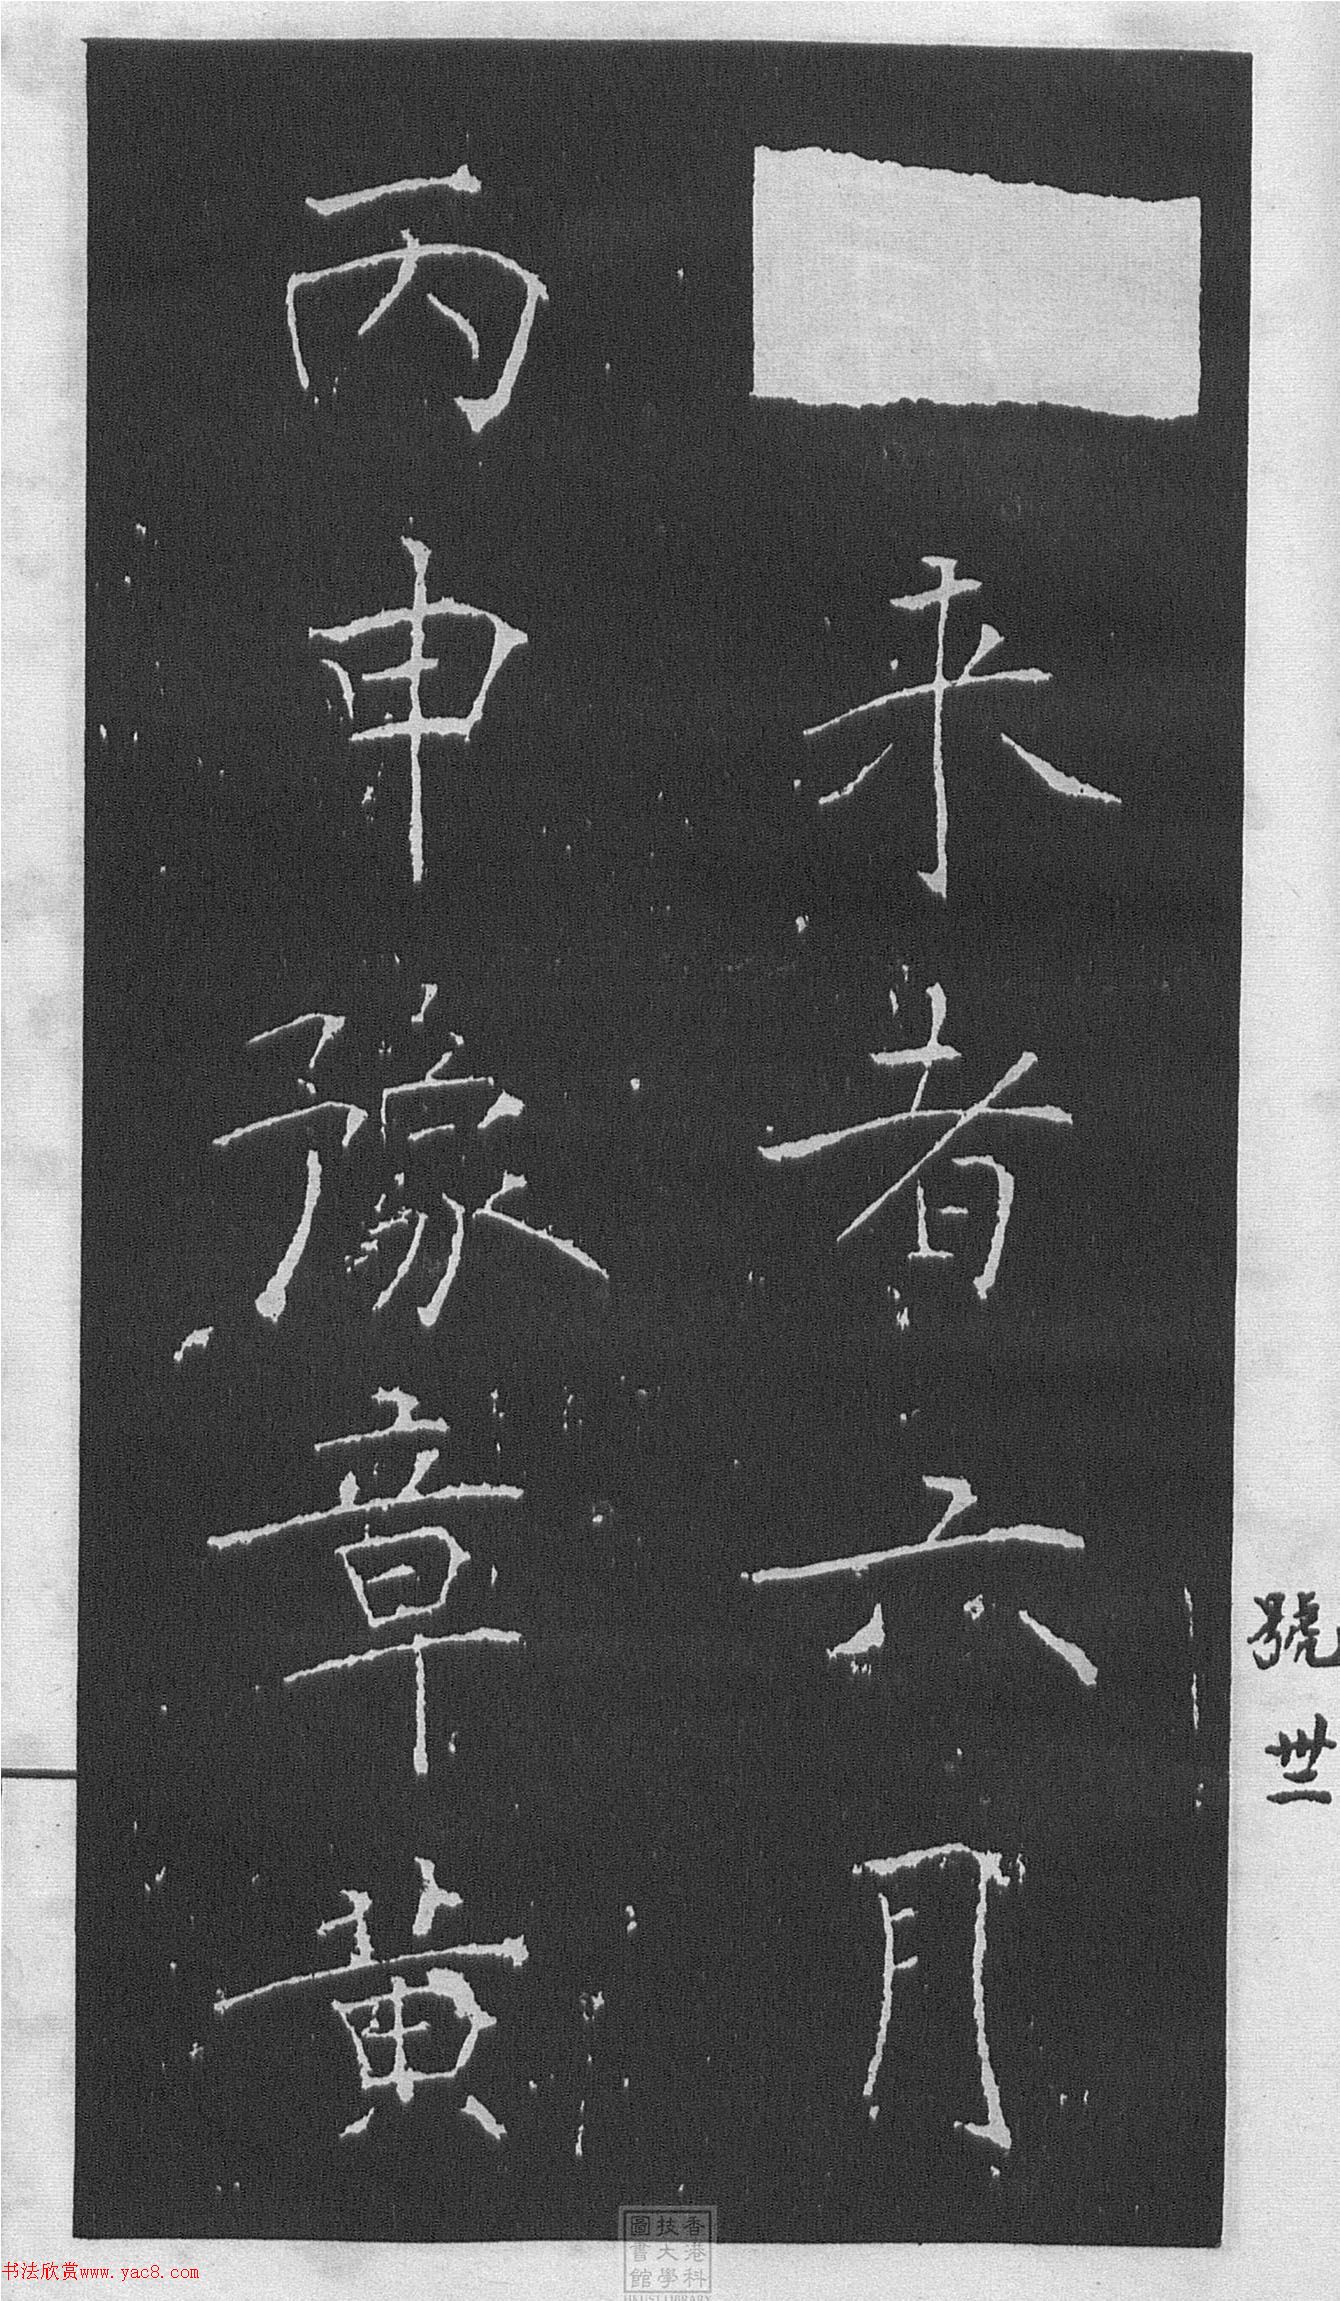 来者六月
丙申豫章黄
號卅二
香港科
技大學
圖書館
HKUST LIBRARY
书法欣赏www.yac8.com